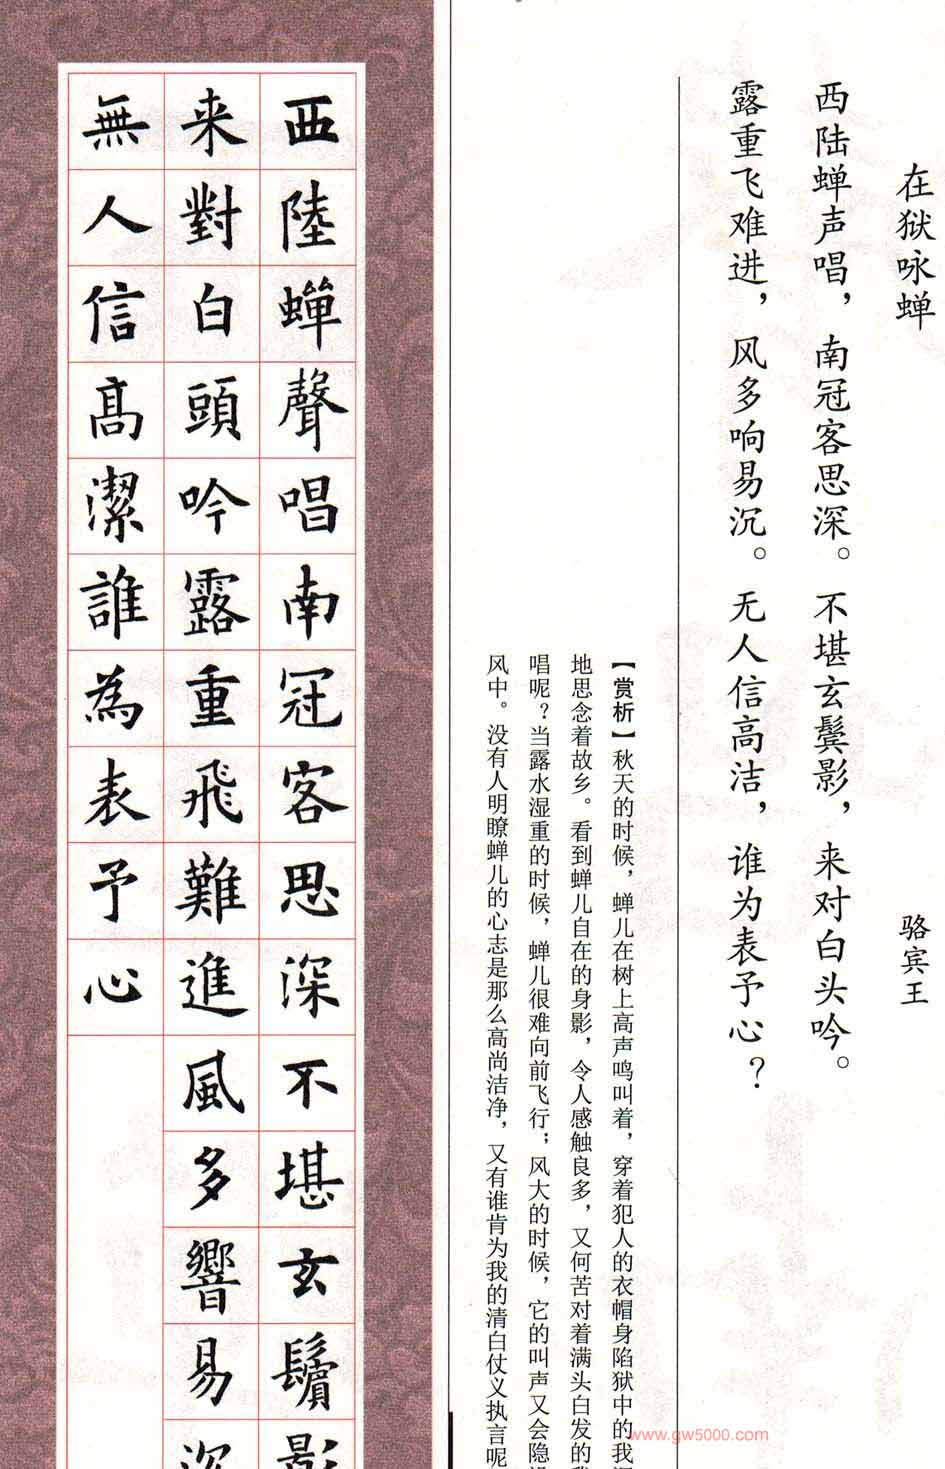 在狱咏蝉
骆宾王
西陆蝉声唱，南冠客思深。不堪玄鬓影，来对白头吟。
露重飞难进，风多响易沉。无人信高洁，谁为表予心？
【赏析】秋天的时候，蝉儿在树上高声鸣叫着，穿着犯人的衣帽身陷狱中的我深
地思念着故乡。看到蝉儿自在的身影，令人感触良多，又何苦对着满头白发的我
唱呢？当露水湿重的时候，蝉儿很难向前飞行；风大的时候，它的叫声又会隐没
风中。没有人明瞭蝉儿的心志是那么高尚洁净，又有谁肯为我的清白仗义执言呢
西陸蟬聲唱南冠客思深不堪玄鬢影
来對白頭吟露重飛難進風多響易沉
無人信高潔誰為表予心
www.gw5000.com